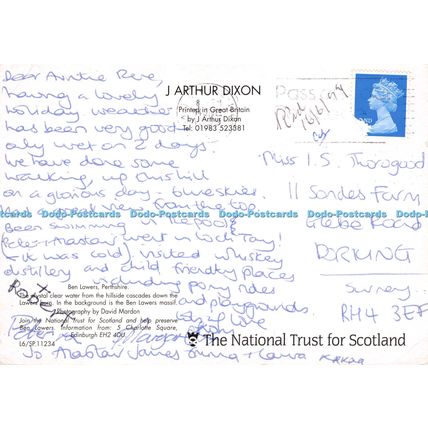 Dear Auntie Rene,
having a lovely
holiday weather
has been very good
only wet on 2 days.
We have done some
walking, up this hill
on a glorious day - blue skies.
And good view from the top
Been swimming in the pool,
Peter + Alastair went in Loch Tay!
It was cold, visited whiskey
distillery and child friendly places
including pony rides
and playgrounds
lots of love
Peter Margaret
Alastair James + Laura
J ARTHUR DIXON
Printed in Great Britain
by J Arthur Dixon
Tel: 01983 523381
Rec'd
16/6/99
Miss I.S. Thorogood
11 Sondes Farm
Glebe Road
DORKING
Surrey
RH4 3EF
Dodo-Postcards Dodo-Postcards Dodo-Postcards Dodo-Postcards Dodo-Postcards
Ben Lawers, Perthshire.
Crystal clear water from the hillside cascades down the
Lawers Burn. In the background is the Ben Lawers massif.
Photography by David Mardon
Join the National Trust for Scotland and help preserve
Ben Lawers. Information from: 5 Charlotte Square,
Edinburgh EH2 4DU
L6/SP.11234
The National Trust for Scotland